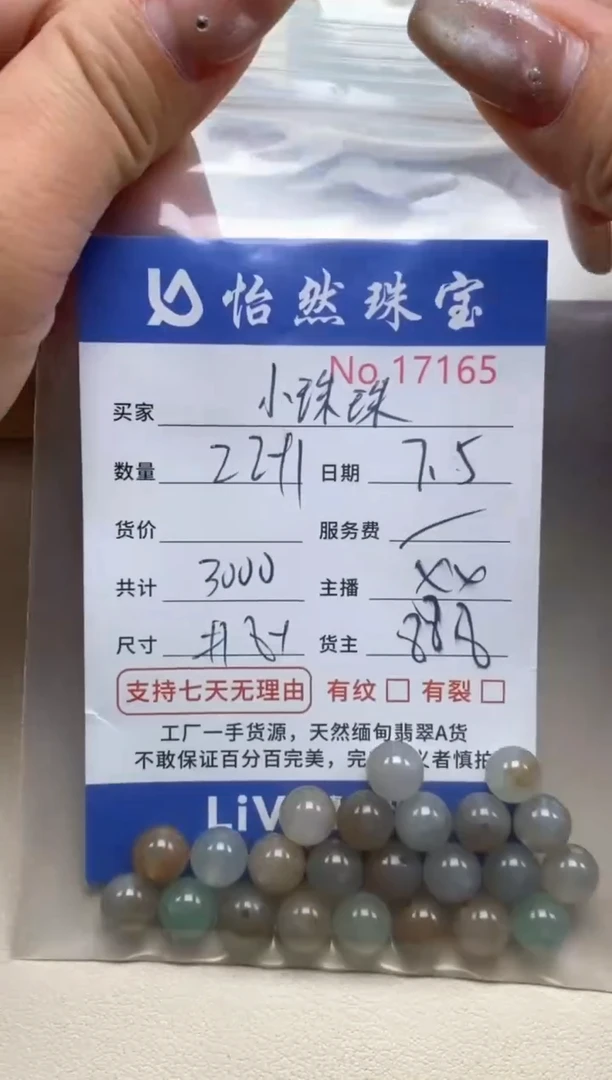 怡然珠宝
No.17165
买家 小珠珠
数量 22 日期 7.5
货价 服务费
共计 3000 主播 XX
尺寸 货主 888
支持七天无理由 有纹 有裂
工厂一手货源，天然缅甸翡翠A货
不敢保证百分百完美，完 义者慎拍
LiV